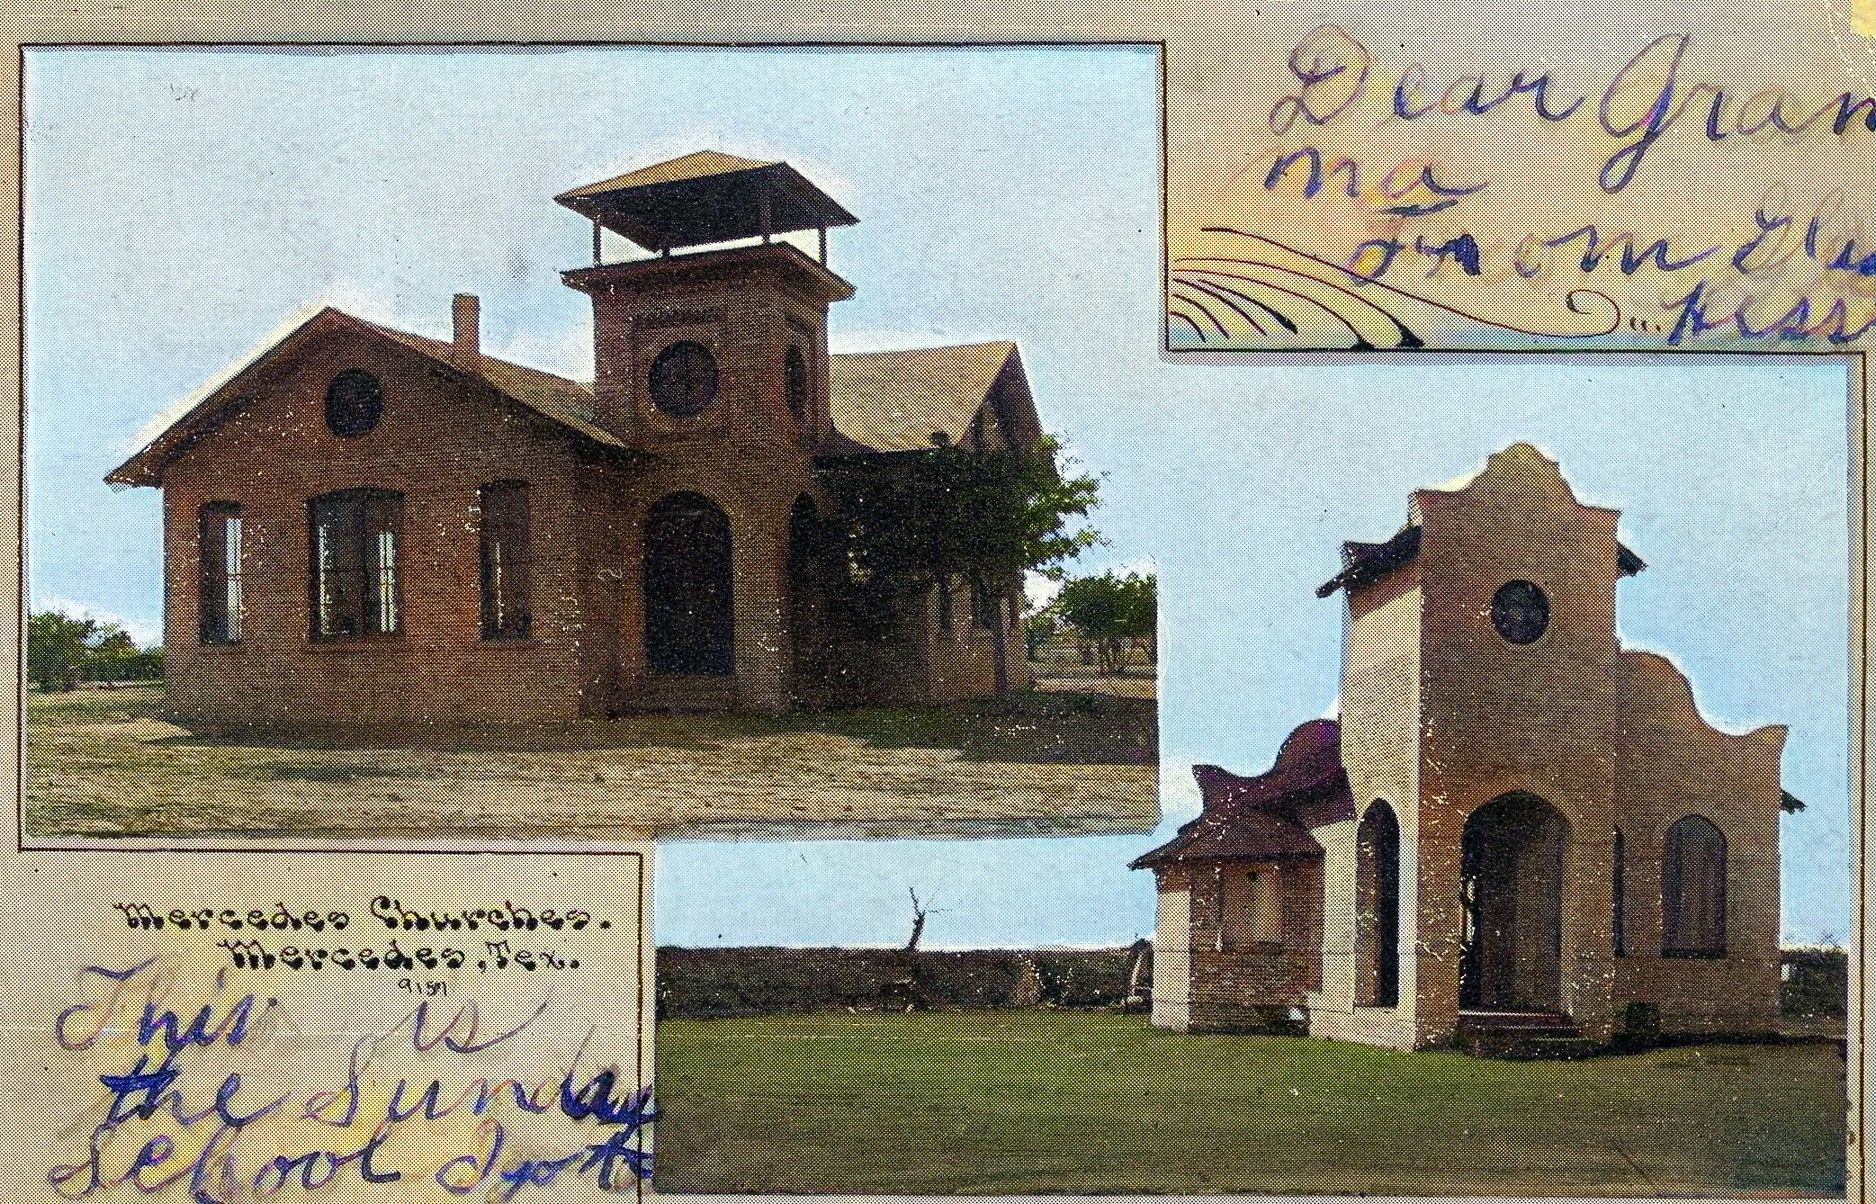 Dear Gran
ma
From
Hess
Mercedes Churches.
Mercedes, Tex.
9157
This is
the Sunday
School I go to